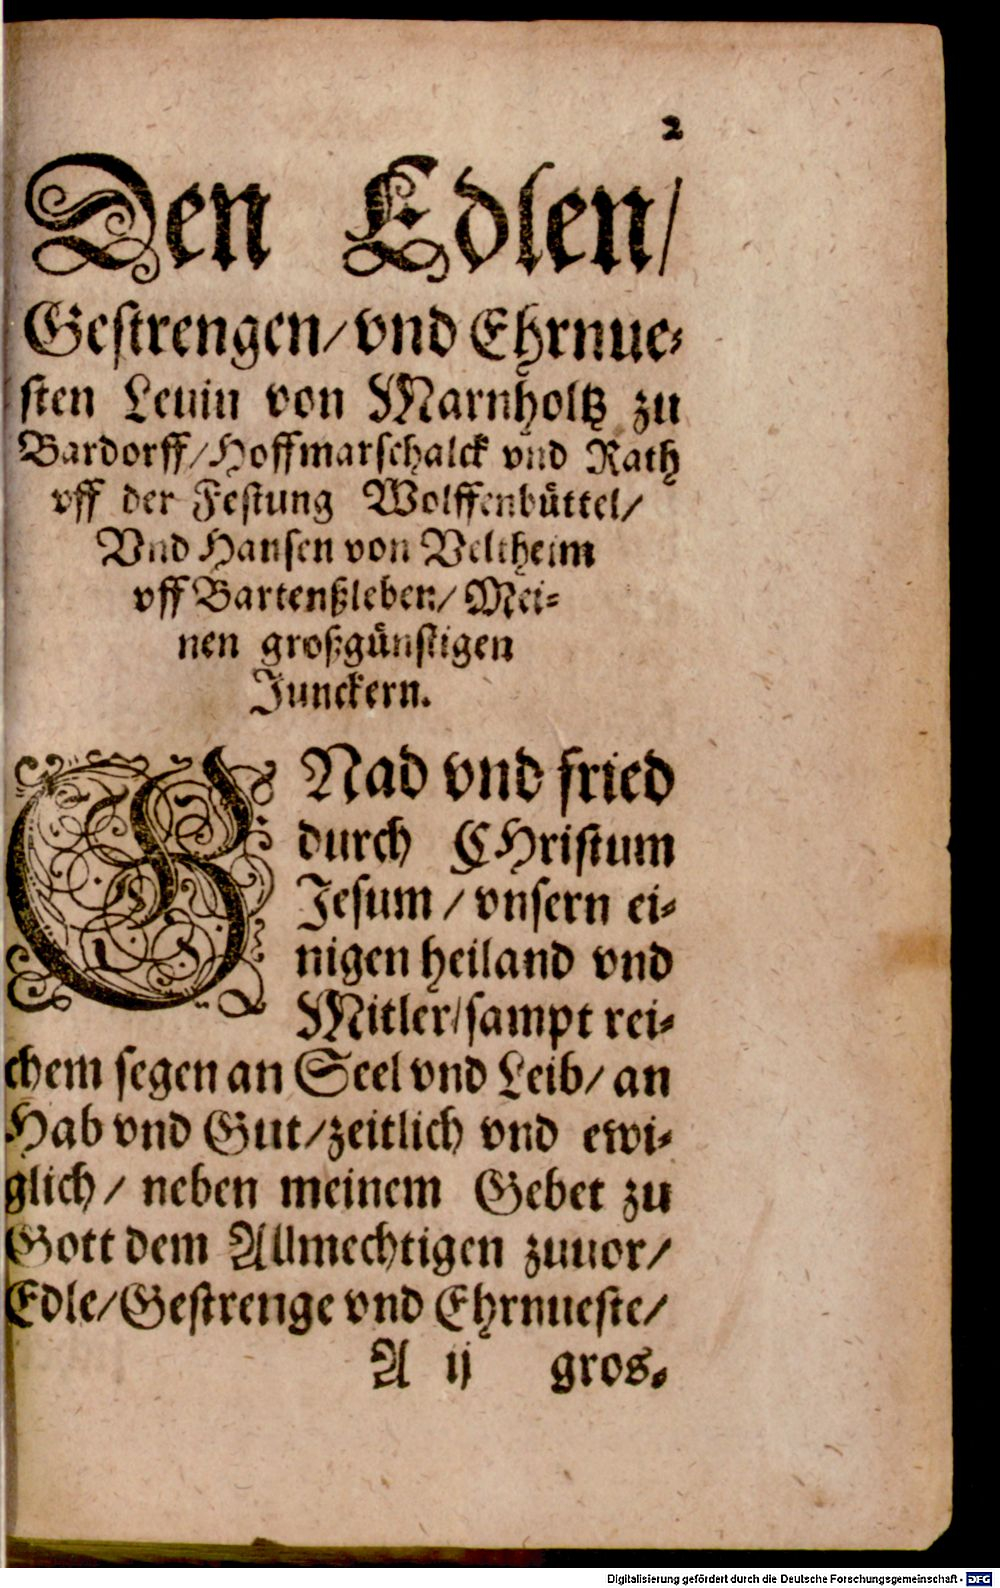 2
Den Edlen/
Gestrengen/ vnd Ehrnue-
sten Leuin von Marnholtz zu
Bardorff/ Hoffmarschalck vnd Rath
vff der Festung Wolffenbüttel/
Vnd Hansen von Veltheim
vff Bartenßleben/ Mei-
nen großgünstigen
Junckern.
GNad vnd fried
durch CHristum
Jesum / vnsern ei-
nigen heiland vnd
Mitler/ sampt rei-
chem segen an Seel vnd Leib/ an
Hab vnd Gut/ zeitlich vnd ewi-
glich/ neben meinem Gebet zu
Gott dem Allmechtigen zuuor/
Edle/ Gestrenge vnd Ehrnueste/
A ij gros-
Digitalisierung gefördert durch die Deutsche Forschungsgemeinschaft - DFG